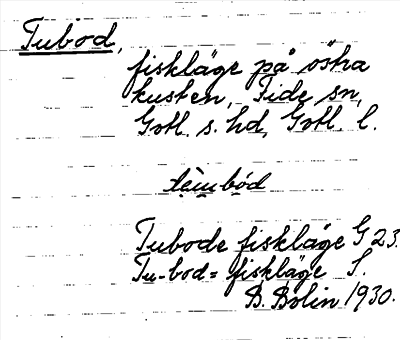 Tubod,
fiskläge på östra
kusten, Fide sn,
Gotl. s. hd, Gotl. l.
Tubode fiskläge G 23.
Tu-bod = fiskläge S.
B. Bolin 1930.